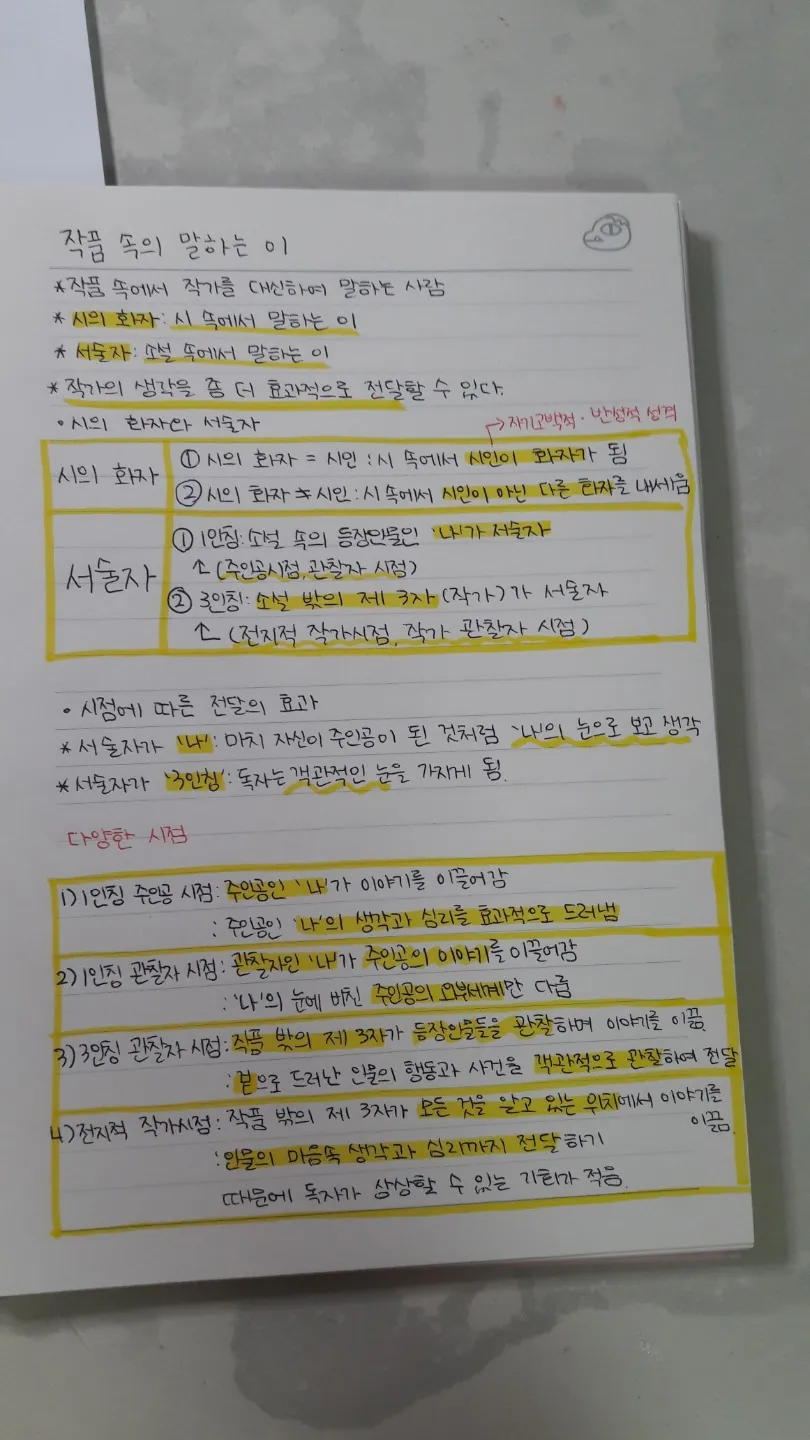 작품 속의 말하는 이
*작품 속에서 작가를 대신하여 말하는 사람
* 시의 화자: 시 속에서 말하는 이
* 서술자: 소설 속에서 말하는 이
* 작가의 생각을 좀 더 효과적으로 전달할 수 있다.
• 시의 화자와 서술자
→자기고백적·반성적 성격
시의 화자
① 시의 화자 = 시인 : 시 속에서 시인이 화자가 됨
② 시의 화자 ≠ 시인 : 시 속에서 시인이 아닌 다른 화자를 내세움
서술자
① 1인칭: 소설 속의 등장인물인 '나'가 서술자
↳ (주인공시점, 관찰자 시점)
② 3인칭: 소설 밖의 제 3자 (작가)가 서술자
↳ (전지적 작가시점, 작가 관찰자 시점)
• 시점에 따른 전달의 효과
* 서술자가 '나': 마치 자신이 주인공이 된 것처럼 '나'의 눈으로 보고 생각
* 서술자가 '3인칭': 독자는 객관적인 눈을 가지게 됨.
다양한 시점
1) 1인칭 주인공 시점: 주인공인 '나'가 이야기를 이끌어감
: 주인공인 '나'의 생각과 심리를 효과적으로 드러냄
2) 1인칭 관찰자 시점: 관찰자인 '나'가 주인공의 이야기를 이끌어감
: '나'의 눈에 비친 주인공의 외부세계만 다룸
3) 3인칭 관찰자 시점: 작품 밖의 제 3자가 등장인물들을 관찰하며 이야기를 이끎.
: 겉으로 드러난 인물의 행동과 사건을 객관적으로 관찰하여 전달
4) 전지적 작가시점: 작품 밖의 제 3자가 모든 것을 알고 있는 위치에서 이야기를
이끎.
: 인물의 마음속 생각과 심리까지 전달하기
때문에 독자가 상상할 수 있는 기회가 적음.